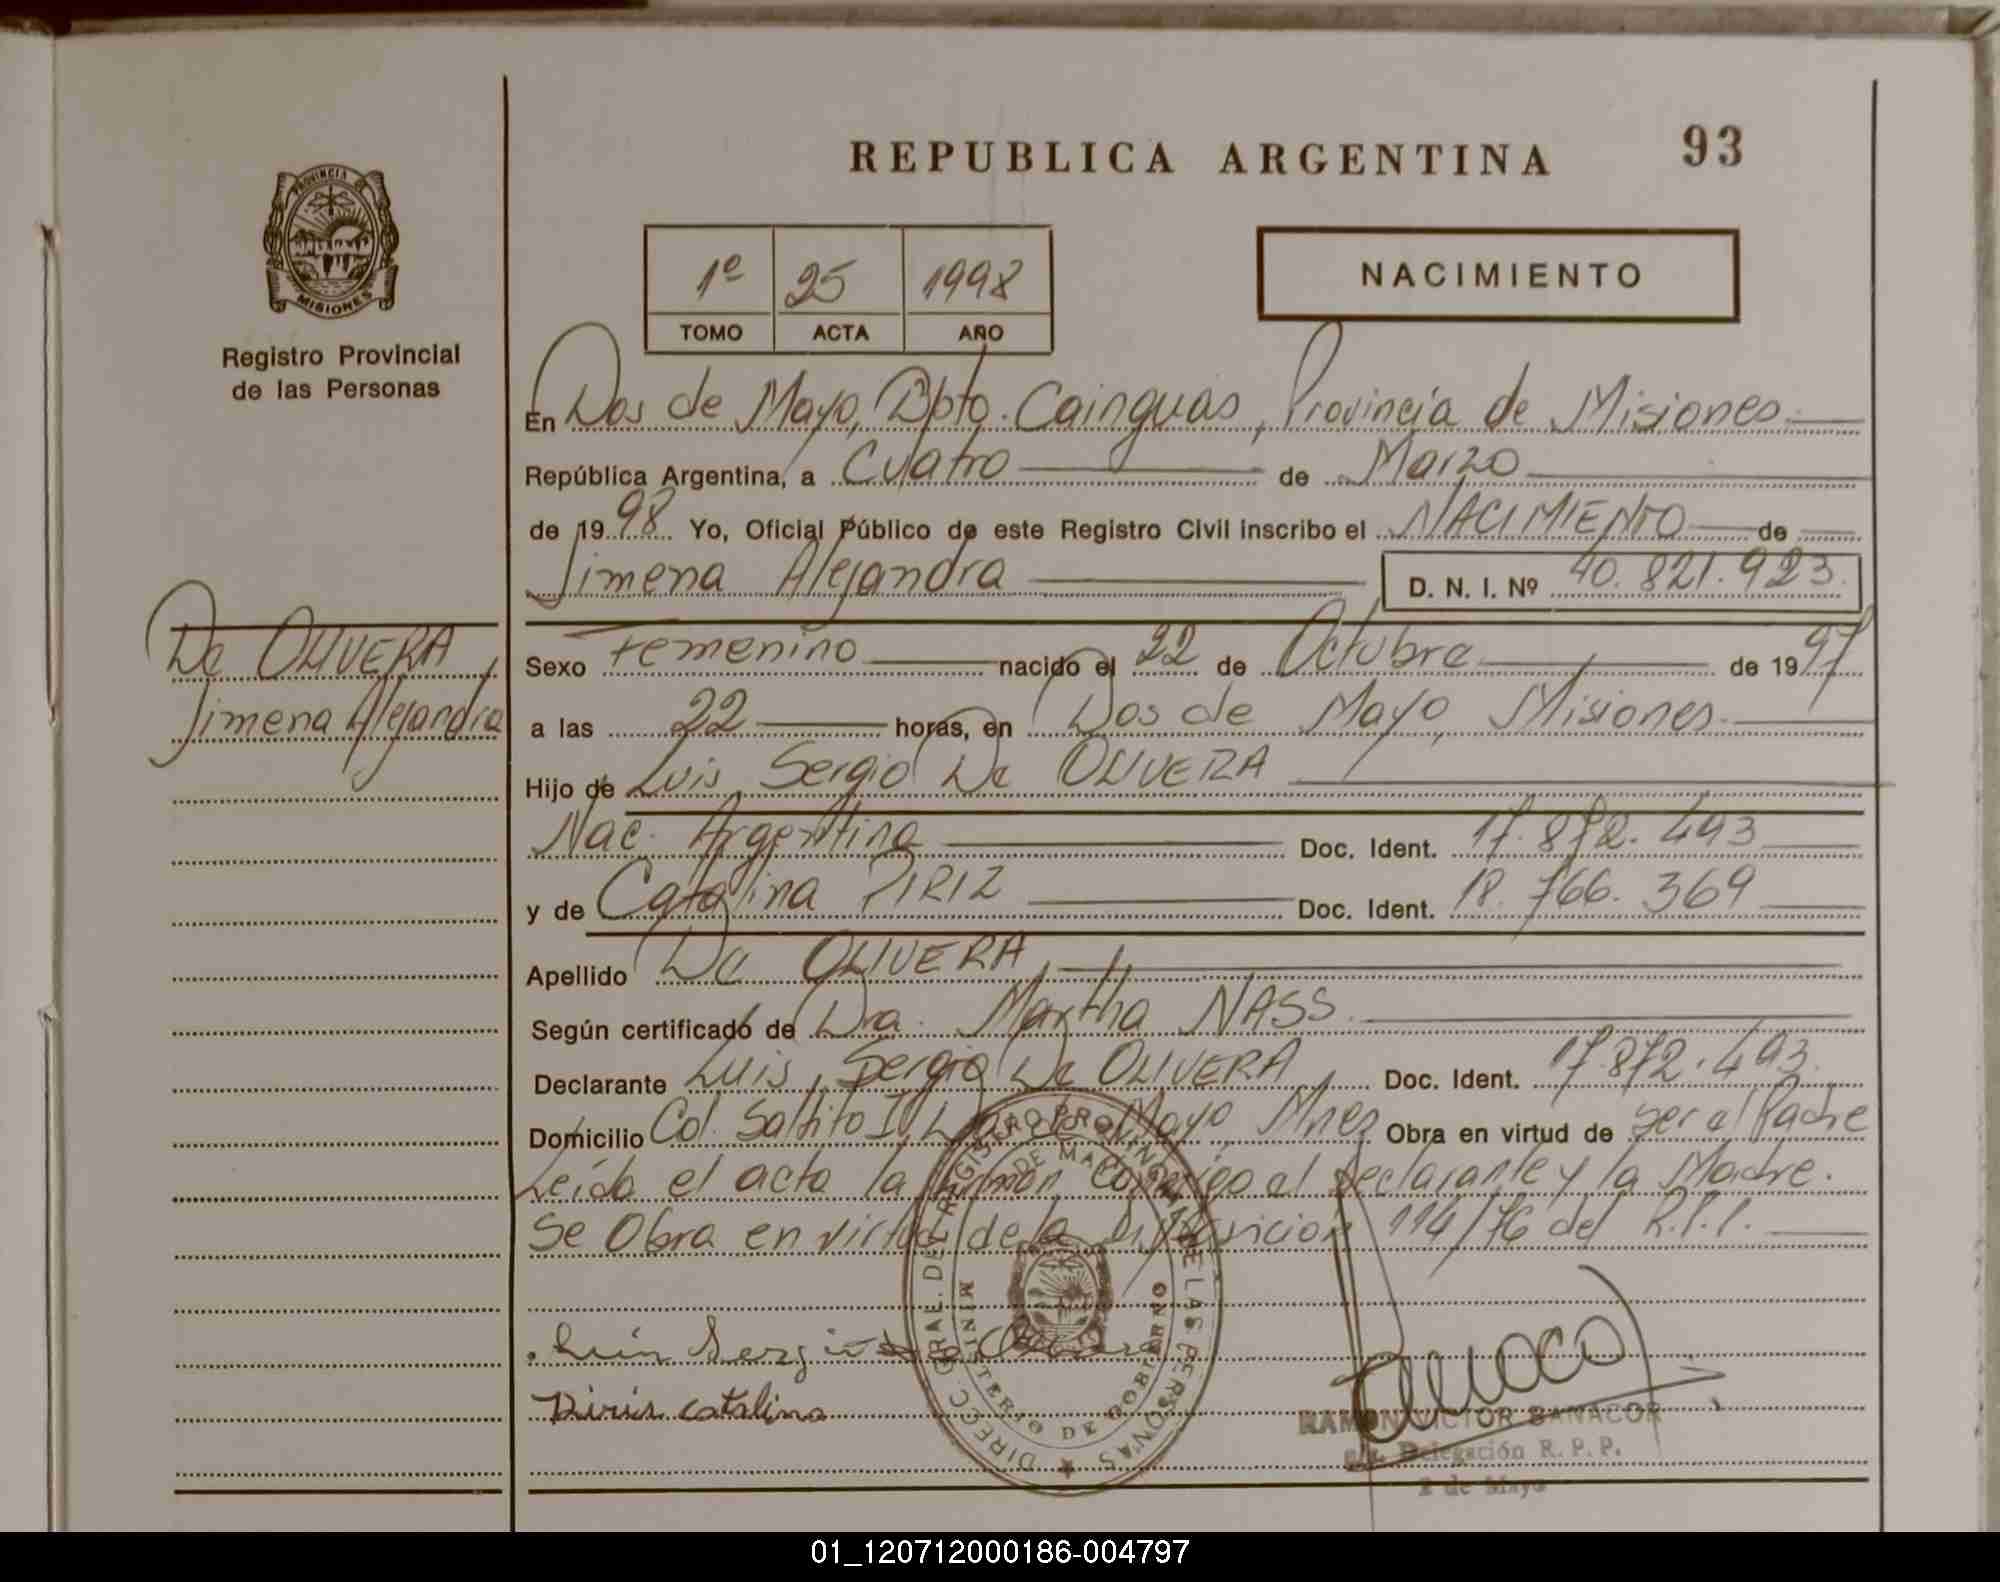 REPUBLICA ARGENTINA
93
PROVINCIA DE
MISIONES
Registro Provincial
de las Personas
1º 25 1998
TOMO ACTA AÑO
NACIMIENTO
En Dos de Mayo, Dpto. Cainguas, Provincia de Misiones
República Argentina, a Cuatro de Marzo
de 1998 Yo, Oficial Público de este Registro Civil inscribo el NACIMIENTO de
Jimena Alejandra D. N. I. Nº 40.821.923
De OLIVERA,
Jimena Alejandra
Sexo Femenino nacido el 22 de Octubre de 1997
a las 22 horas, en Dos de Mayo, Misiones
Hijo de Luis Sergio De OLIVERA
Nac. Argentina Doc. Ident. 17.872.493
y de Catalina PIRIZ Doc. Ident. 18.766.369
Apellido De OLIVERA
Según certificado de Dra. Martha NASS
Declarante Luis Sergio De OLIVERA Doc. Ident. 17.872.493
Domicilio Col. Saltito I, Dos de Mayo, Mnes Obra en virtud de ser el Padre
Leída el acta la firman conmigo el declarante y la Madre.
Se Obra en virtud de la Disposición 114/76 del R.P.P.
DIRECC. GRAL. DEL REGISTRO PROVINCIAL DE LAS PERSONAS
MINISTERIO DE GOBIERNO
Luis Sergio de Olivera
Piris catalina
RAMON VICTOR BANACOR
Delegación R. P. P.
2 de Mayo
01_120712000186-004797